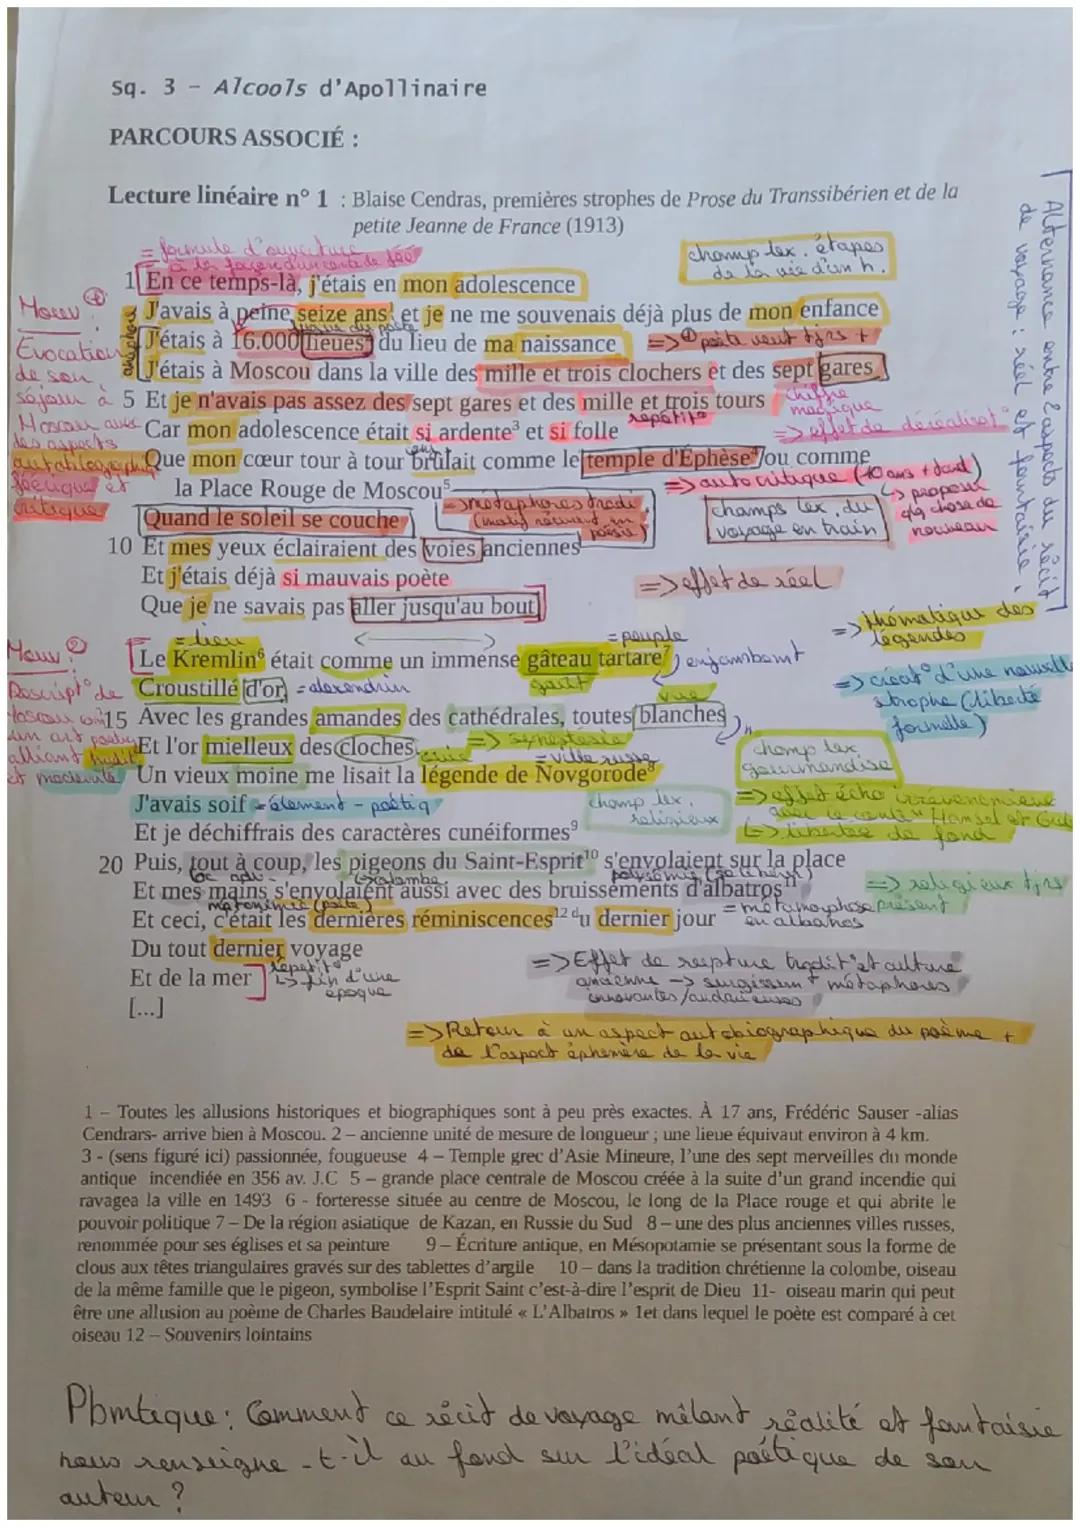 Sq. 3 - Alcools d'Apollinaire
PARCOURS ASSOCIÉ :
Lecture linéaire n° 1 : Blaise Cendras, premières strophes de Prose du Transsibérien et de la
petite Jeanne de France (1913)
= formule d'ouverture
à la façon d'un conte de fée
champ lex. étapes
de la vie d'un h.
Alternance entre 2 aspects du récit
de voyage : réel et fantaisie.
1 En ce temps-là, j'étais en mon adolescence
J'avais à peine seize ans¹ et je ne me souvenais déjà plus de mon enfance
J'étais à 16.000 lieues² du lieu de ma naissance
=> poète veut tjrs +
J'étais à Moscou dans la ville des mille et trois clochers et des sept gares
anaphore
Mouv 1
Evocation
de son
séjour à
Moscou avec
des aspects
autobiographiq
poétique et
critique
5 Et je n'avais pas assez des sept gares et des mille et trois tours
chiffre
magique
répétit°
=> effet de déréalisat°
Car mon adolescence était si ardente³ et si folle
Que mon cœur tour à tour brûlait comme le temple d'Éphèse⁴ ou comme
la Place Rouge de Moscou⁵
=> autocritique (10 ans + tard)
↳ proposer
qq chose de
nouveau
= métaphores tradi
(motif récurrent en
poésie)
champs lex. du
voyage en train
Quand le soleil se couche
10 Et mes yeux éclairaient des voies anciennes
Et j'étais déjà si mauvais poète
=> effet de réel
Que je ne savais pas aller jusqu'au bout
=> thématique des
légendes
Mouv 2
Descript° de
Moscou
un art poétiq
alliant tradit°
et modernité
= lieu
= peuple
Le Kremlin⁶ était comme un immense gâteau tartare⁷
enjambemt
goût
Croustillé d'or,
= alexandrin
=> créat° d'une nouvelle
strophe (liberté
formelle)
vue
15 Avec les grandes amandes des cathédrales, toutes blanches
Et l'or mielleux des cloches...
ouïe
=> synestésie
= ville russe
champ lex
gourmandise
Un vieux moine me lisait la légende de Novgorode⁸
J'avais soif
= élement - poétiq
champ lex.
religieux
=> effet écho
avec le conte "Hansel et
↳ libertés de fond
Et je déchiffrais des caractères cunéiformes⁹
20 Puis, tout à coup, les pigeons du Saint-Esprit¹⁰ s'envolaient sur la place
Et mes mains s'envolaient aussi avec des bruissements d'albatros¹¹
=> religieux tjrs
présent
Et ceci, c'était les dernières réminiscences¹² du dernier jour
= métamorphose
en albatros
Du tout dernier voyage
Et de la mer
répétit°
↳ fin d'une
époque
[...]
=> Effet de rupture tradit° et culture
ancienne → métaphores
innovantes/audacieuses
=> Retour à un aspect autobiographique du poème +
de l'aspect éphémère de la vie
1 – Toutes les allusions historiques et biographiques sont à peu près exactes. À 17 ans, Frédéric Sauser -alias
Cendrars- arrive bien à Moscou. 2 – ancienne unité de mesure de longueur ; une lieue équivaut environ à 4 km.
3 - (sens figuré ici) passionnée, fougueuse 4 – Temple grec d'Asie Mineure, l'une des sept merveilles du monde
antique incendiée en 356 av. J.C 5 – grande place centrale de Moscou créée à la suite d'un grand incendie qui
ravagea la ville en 1493 6 - forteresse située au centre de Moscou, le long de la Place rouge et qui abrite le
pouvoir politique 7 – De la région asiatique de Kazan, en Russie du Sud 8 – une des plus anciennes villes russes,
renommée pour ses églises et sa peinture 9 – Écriture antique, en Mésopotamie se présentant sous la forme de
clous aux têtes triangulaires gravés sur des tablettes d'argile 10 – dans la tradition chrétienne la colombe, oiseau
de la même famille que le pigeon, symbolise l'Esprit Saint c'est-à-dire l'esprit de Dieu 11- oiseau marin qui peut
être une allusion au poème de Charles Baudelaire intitulé « L'Albatros » 1et dans lequel le poète est comparé à cet
oiseau 12 – Souvenirs lointains
Pbmtique : Comment ce récit de voyage mêlant réalité et fantaisie
nous renseigne-t-il au fond sur l'idéal poétique de son
auteur ?